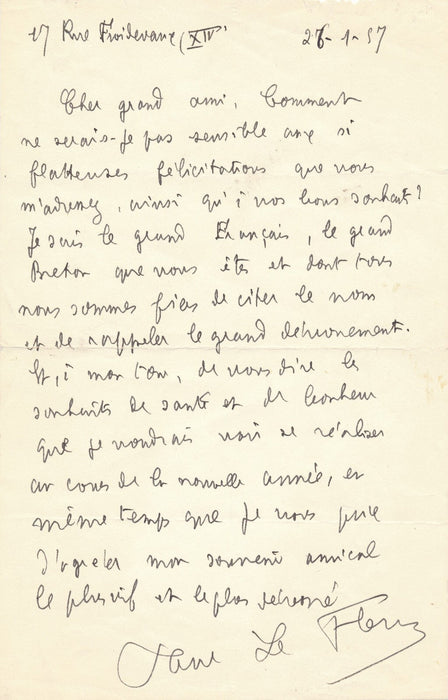 17 Rue Froidevaux, (XIV)
26-1-57
Cher grand ami, Comment
ne serais-je pas sensible aux si
flatteuses félicitations que vous
m'adressez, ainsi qu'à vos bons souhaits?
Je sais le grand Français, le grand
Breton que vous êtes et dont tous
nous sommes fiers de citer le nom
et de rappeler le grand dévouement.
Et, à mon tour, de vous dire les
souhaits de santé et de bonheur
que je voudrais voir se réaliser
au cours de la nouvelle année, en
même temps que je vous prie
d'agréer mon souvenir amical
le plus vif et le plus dévoué
Le